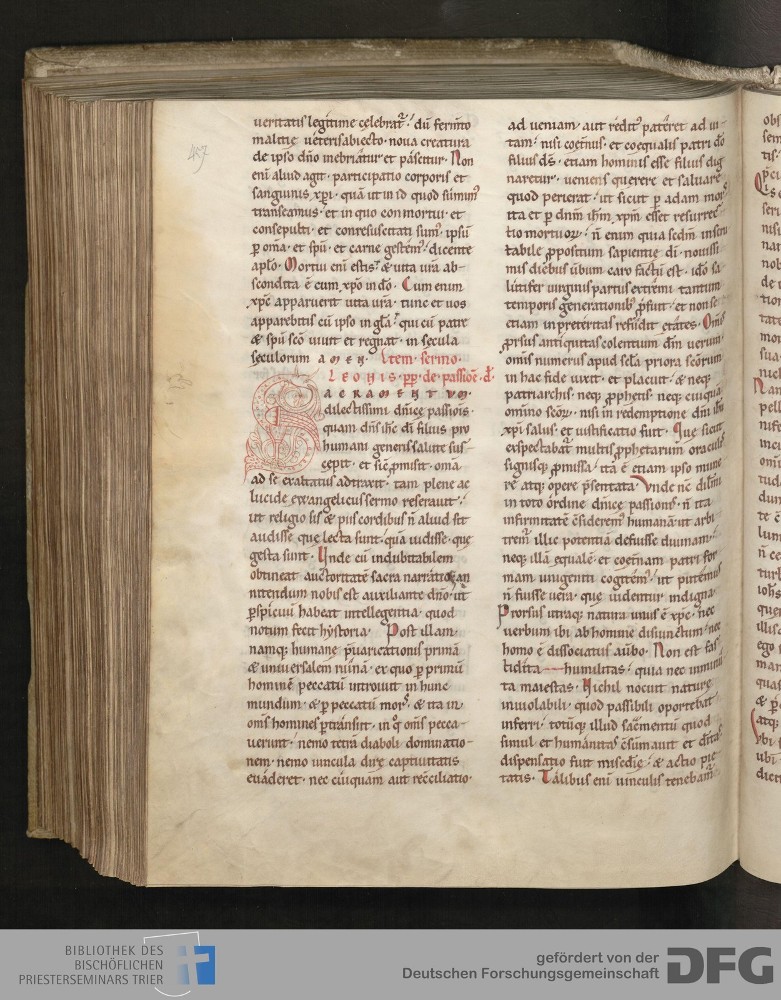 457
ueritatis legitime celebrat᷑. dū fermto
malitie ueteris abiecto. noua creatura
de ipso dn̄o inebriatur et pascitur. Non
eni aliud agit. participatio corporis et
sanguinis xp̄i. quā ut in id quod sumim᷒
transeamus. et in quo conmortui. et
consepulti. et conresuscitati sum᷒. ipsū
ꝑ om̄a. et sp̄u. et carne gestem᷒. dicente
aplo. Mortui eni estis. & uita ur̄a ab-
scondita ē cum xp̄o in dō. Cum enim
xp̄c apparuerit uita ur̄a. tunc et uos
apparebitis cū ipso in gl̄a. qui cū patre
& sp̄u sc̄o uiuit et regnat. in secula
seculorum AMEN. Item. sermo.
LEONIS. pp̄. de. passiōe. d̄.
SACRAMENTUM.
dilectissimi dn̄ice passiōis.
quam dn̄s ih̄c dī filius pro
humani generis salute sus-
cepit. et sic̄ ꝓmisit. om̄a.
ad se exaltatus adtraxit. tam plene ac
lucide ewangelicus sermo reserauit.
ut religiosis & piis cordibus n̄ aliud sit
audisse que lecta sunt. quā uidisse. que
gesta sunt. Unde cū indubitabilem
obtineat auctoritatē sacra narratio. an
nitendum nobis est auxiliante dn̄o. ut
ꝑspicuū habeat intellegentia. quod
notum fecit hystoria. Post illam.
namq; humane p̄uaricationis primā
& uniuersalem ruinā. ex quo ꝑ primū
hominē peccatū introiuit in hunc
mundum. & ꝑ peccatū mors. & ita in
om̄s homines ꝑtransiit. in q̊ om̄s pecca-
uerunt. nemo tetrā diaboli dominatio-
nem. nemo uincula dire captiuitatis
euaderet. nec cuiquam aut recc̄iliatio.
ad ueniam. aut redit᷒ pateret ad ui-
tam. nisi coet̄nus. et coequalis patri dō
filius dī. etiam hominis esse filius dig
naretur. ueniens querere et saluare
quod perierat. ut sicut ꝑ adam mors
ita et ꝑ dnm̄ ih̄m xpm̄ esset resurrec
tio mortuoꝝ. n̄ enim quia sedm̄ inscru
tabile ꝓpositum sapientie dī. nouissi
mis diebus ūbum caro factū est. idō sa
lutifer uirginis partus extremi tantum
temporis generationib᷒ ꝓfuit. et non se
etiam in preteritas refudit etates. Om̄is
ꝓrsus antiquitas colentium dm̄ uerum.
om̄s numerus apud secl̄a priora sc̄orum
in hac fide uixit. et placuit. & neq;
patriarchis. neq; ꝓphetis. neq; cuiquā
omnino sc̄oꝝ. nisi in redemptione dni ih̄u
xp̄i salus. et iustificatio fuit. Que sicut
exspectabat᷑ multis ꝓphetarum oraculis
signisq; ꝓmissa. ita ē etiam ipso mune
re atq; opere p̄sentata. Unde nc̄ dilmi
in toto ordine dn̄ice passionis. n̄ ita
infirmitatē c̄siderem᷒ humanā. ut arbi
trem᷑ illic potentiā defuisse diuinam.
neq; illā equalē. et coet̄nam patri for
mam unigeniti cogitem᷒. ut putem᷒
n̄ fuisse uera. que uidentur indigna.
Prorsus utraq; natura unus ē xp̄c. nec
uerbum ibi ab homine disiunctum. nec
homo ē dissociatus a ūbo. Non est fas-
tidita humilitas. quia nec imminu
ta maiestas. Nichil nocuit nature
inuiolabili. quod passibili oportebat
inferri. totūq; illud sac̄mentū quod
simul et humanitas c̄sumauit et d̄itas
dispensatio fuit misc̄dīe. & actio pie
tatis. Talibus eni uinculis tenebam᷑
BIBLIOTHEK DES
BISCHÖFLICHEN
PRIESTERSEMINARS TRIER
gefördert von der
Deutschen Forschungsgemeinschaft
DFG